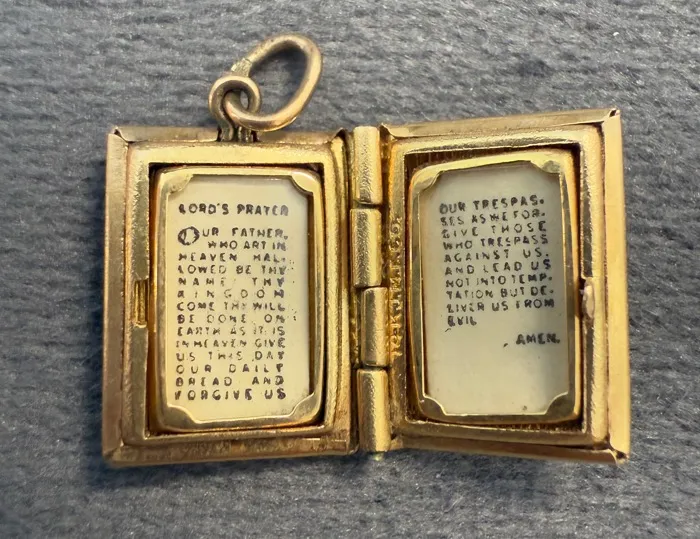 LORD'S PRAYER
OUR FATHER,
WHO ART IN
HEAVEN HAL-
LOWED BE THY
NAME THY
KINGDOM
COME THY WILL
BE DONE ON
EARTH AS IT IS
IN HEAVEN GIVE
US THIS DAY
OUR DAILY
BREAD AND
FORGIVE US
OUR TRESPAS-
SES AS WE FOR-
GIVE THOSE
WHO TRESPASS
AGAINST US.
AND LEAD US
NOT INTO TEMP-
TATION BUT DE-
LIVER US FROM
EVIL
AMEN.